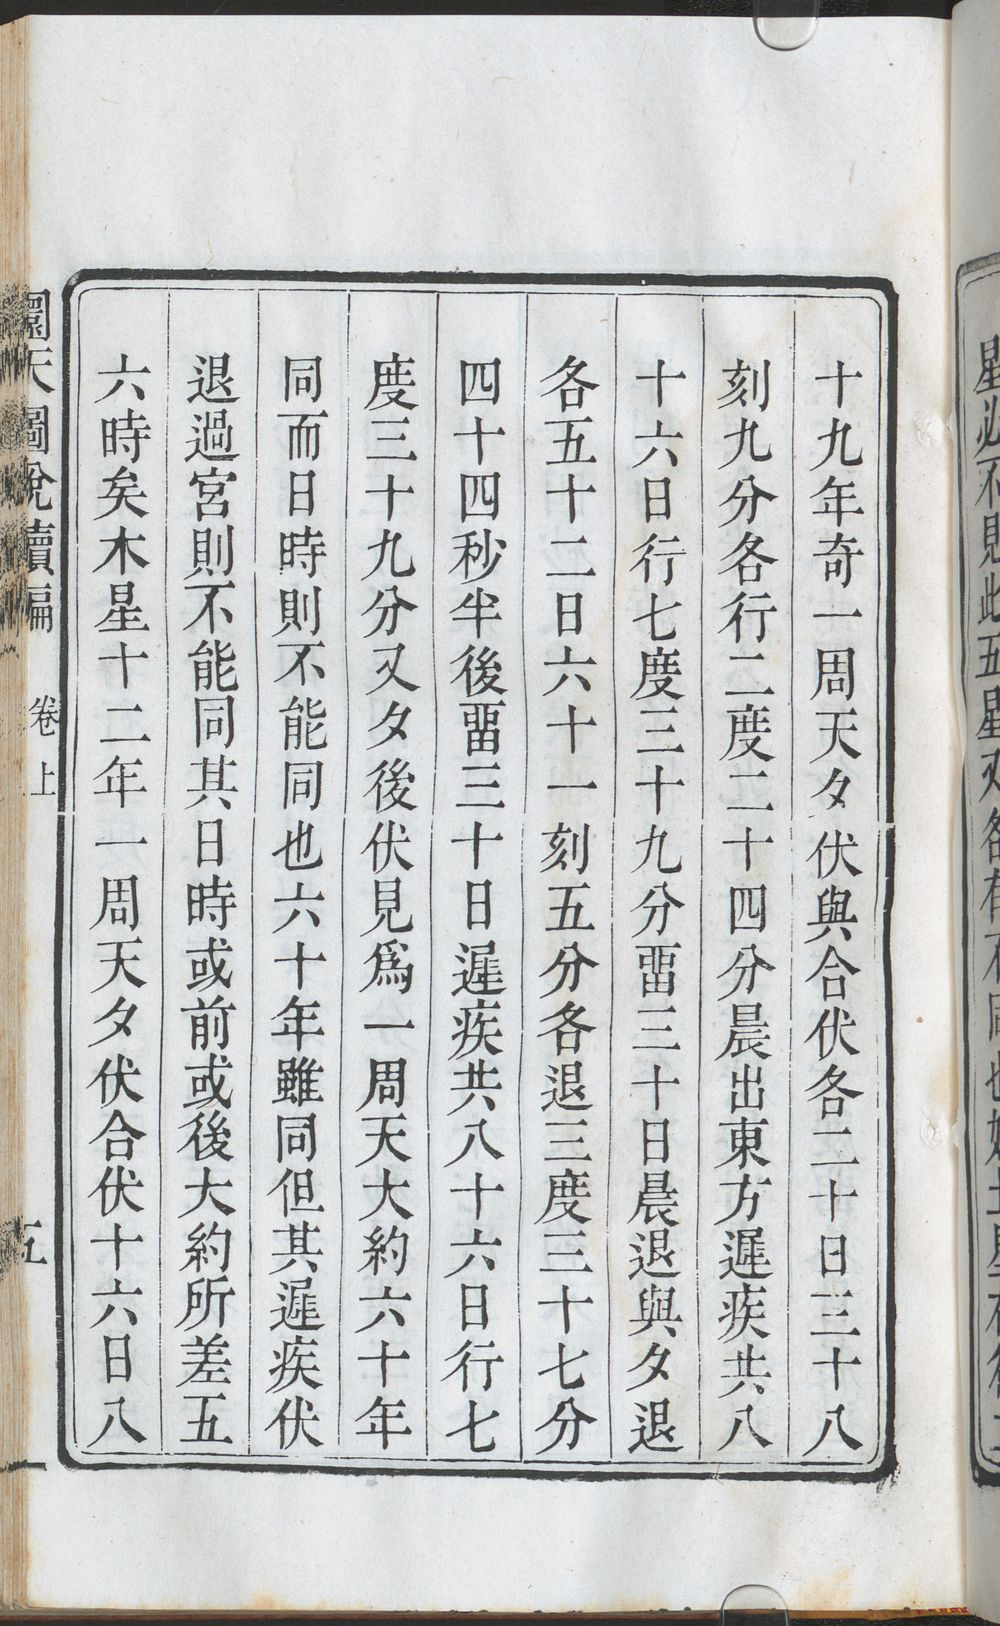 十九年奇一周天夕伏與合伏各二十日三十八
刻九分各行二度二十四分晨出東方遲疾共八
十六日行七度三十九分畱三十日晨退與夕退
各五十二日六十一刻五分各退三度三十七分
四十四秒半後畱三十日遲疾共八十六日行七
度三十九分又夕後伏見爲一周天大約六十年
同而日時則不能同也六十年雖同但其遲疾伏
退過宮則不能同其日時或前或後大約所差五
六時矣木星十二年一周天夕伏合伏十六日八
圜天圖說續編 卷上 五